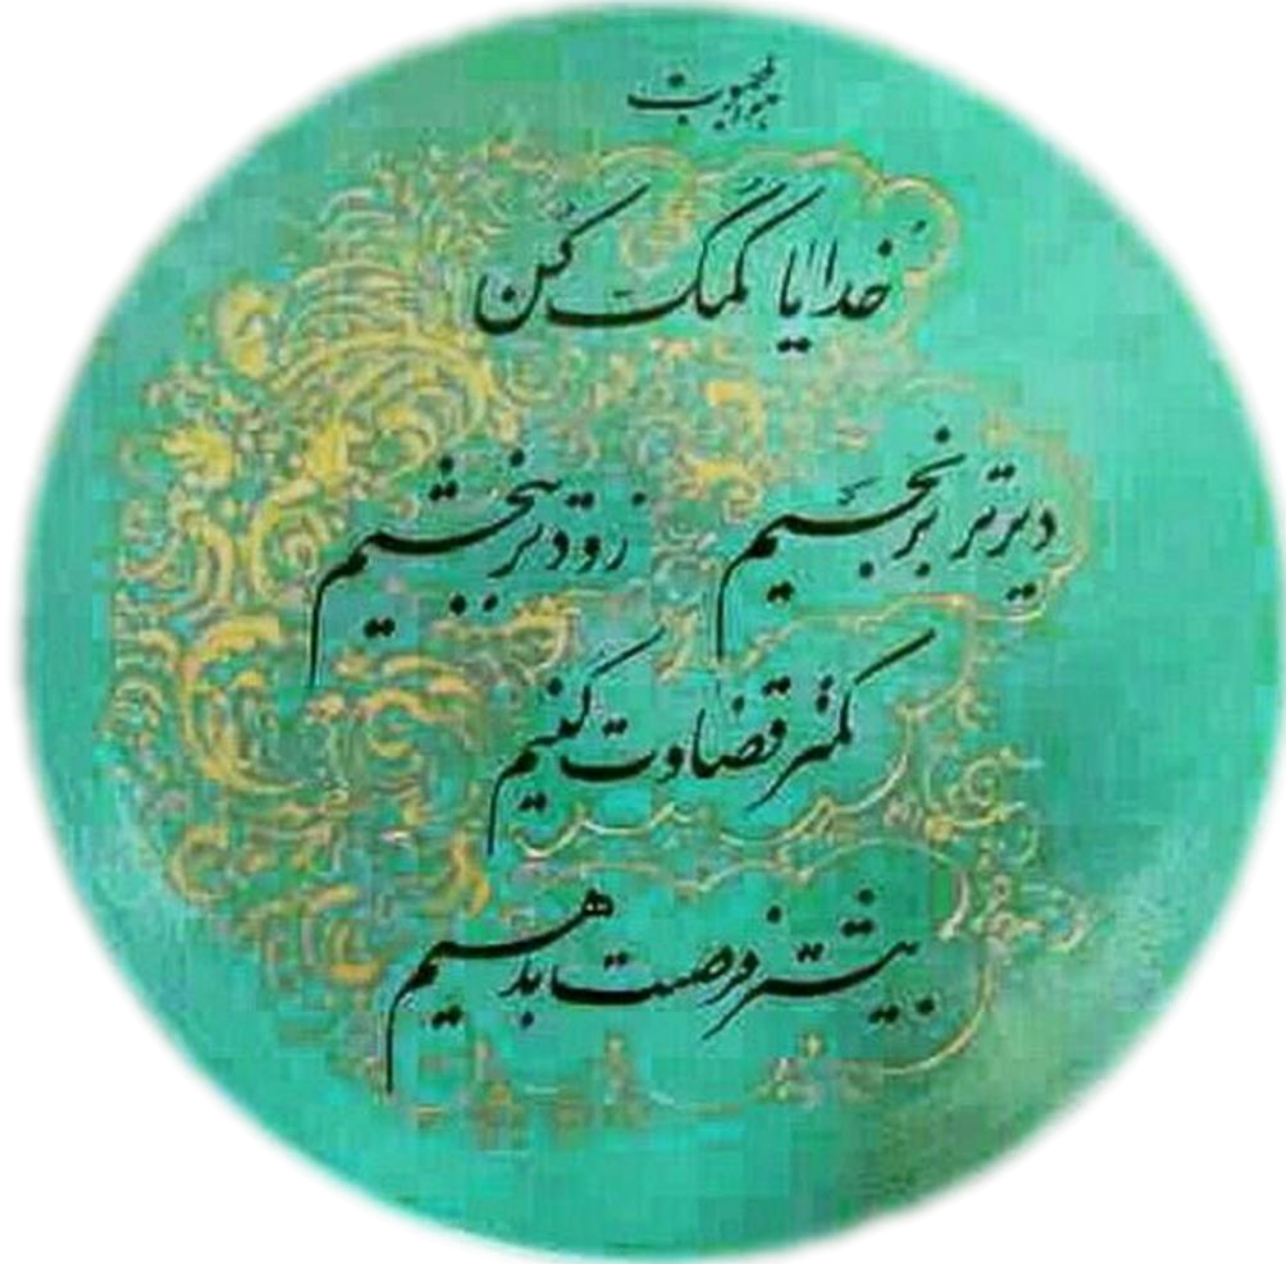 خدایا کمک کن
دیرتر برنجیم زودتر ببخشیم
کمتر قضاوت کنیم
بیشتر فرصت بدهیم